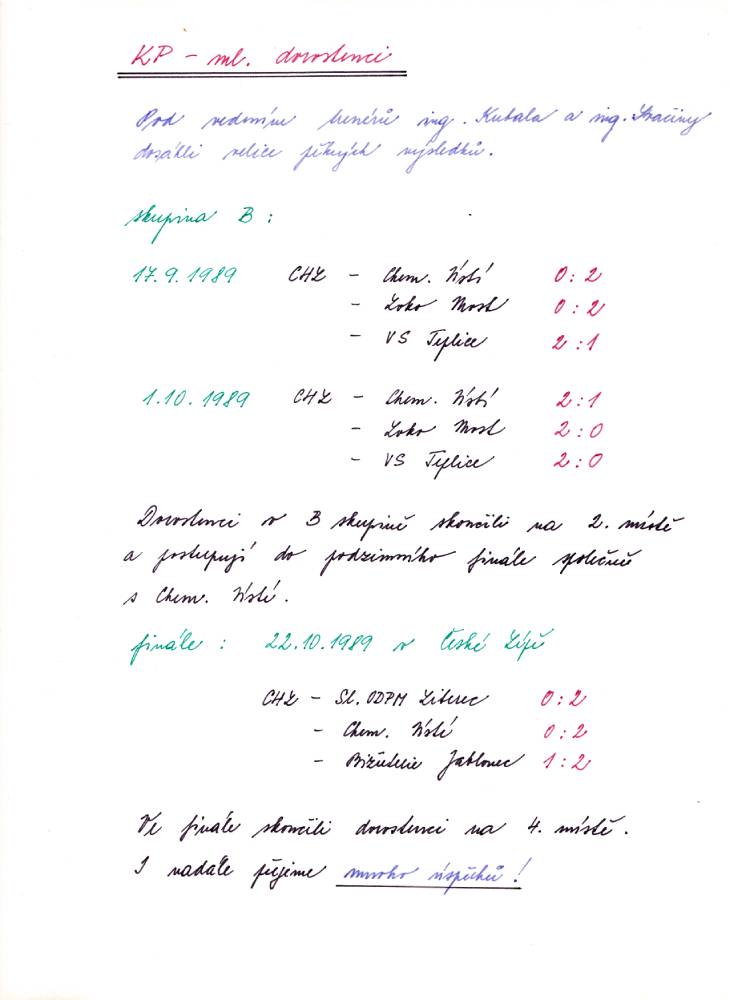 KP - ml. dorostenci
Pod vedením trenérů ing. Kubala a ing. Svačiny
dosáhli velice pěkných výsledků.
skupina B :
17.9.1989 CHZ - Chem. Ústí 0:2
- Loko Most 0:2
- VS Teplice 2:1
1.10.1989 CHZ - Chem. Ústí 2:1
- Loko Most 2:0
- VS Teplice 2:0
Dorostenci v B skupině skončili na 2. místě
a postupují do podzimního finále společně
s Chem. Ústí.
finále : 22.10.1989 v České Lípě
CHZ - Sl. ODPM Liberec 0:2
- Chem. Ústí 0:2
- Bižuterie Jablonec 1:2
Ve finále skončili dorostenci na 4. místě.
I nadále přejeme mnoho úspěchů!